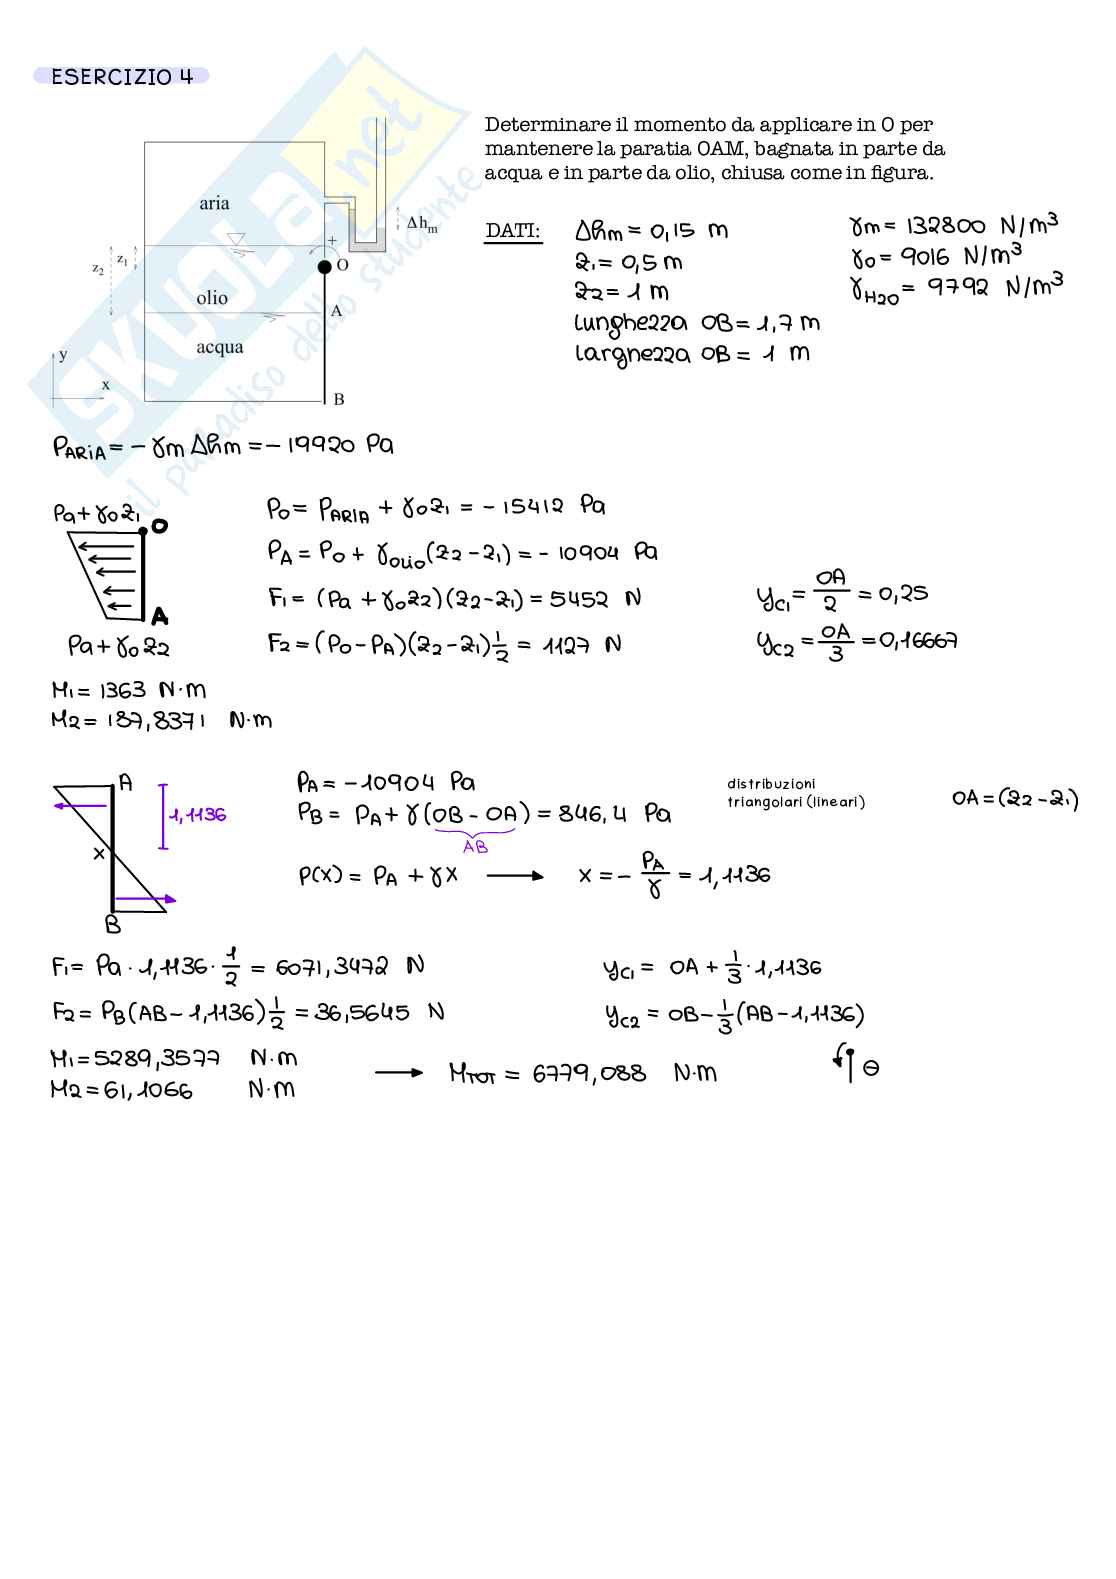 ESERCIZIO 4
Determinare il momento da applicare in O per
mantenere la paratia OAM, bagnata in parte da
acqua e in parte da olio, chiusa come in figura.
aria
Δhm
+
z2 z1
O
olio
A
acqua
y
x
B
SKUOLA.net
il paradiso dello studente
DATI:
Δhm = 0,15 m
z1 = 0,5 m
z2 = 1 m
lunghezza OB = 1,7 m
larghezza OB = 1 m
γm = 132800 N/m³
γo = 9016 N/m³
γH2O = 9792 N/m³
PARIA = - γm Δhm = - 19920 Pa
Pa + γo z1
O
A
Pa + γo z2
Po = PARIA + γo z1 = - 15412 Pa
PA = Po + γolio (z2 - z1) = - 10904 Pa
F1 = (Pa + γo z2)(z2 - z1) = 5452 N
F2 = (Po - PA)(z2 - z1) 1/2 = 1127 N
yc1 = OA/2 = 0,25
yc2 = OA/3 = 0,16667
M1 = 1363 N·m
M2 = 187,8371 N·m
A
1,1136
x
B
PA = - 10904 Pa
PB = PA + γ (OB - OA) = 846,4 Pa
AB
distribuzioni
triangolari (lineari)
OA = (z2 - z1)
P(x) = PA + γx → x = - PA/γ = 1,1136
F1 = Pa · 1,1136 · 1/2 = 6071,3472 N
yc1 = OA + 1/3 · 1,1136
F2 = PB (AB - 1,1136) 1/2 = 36,5645 N
yc2 = OB - 1/3 (AB - 1,1136)
M1 = 5289,3577 N·m
M2 = 61,1066 N·m
→ MTOT = 6779,088 N·m
⊖